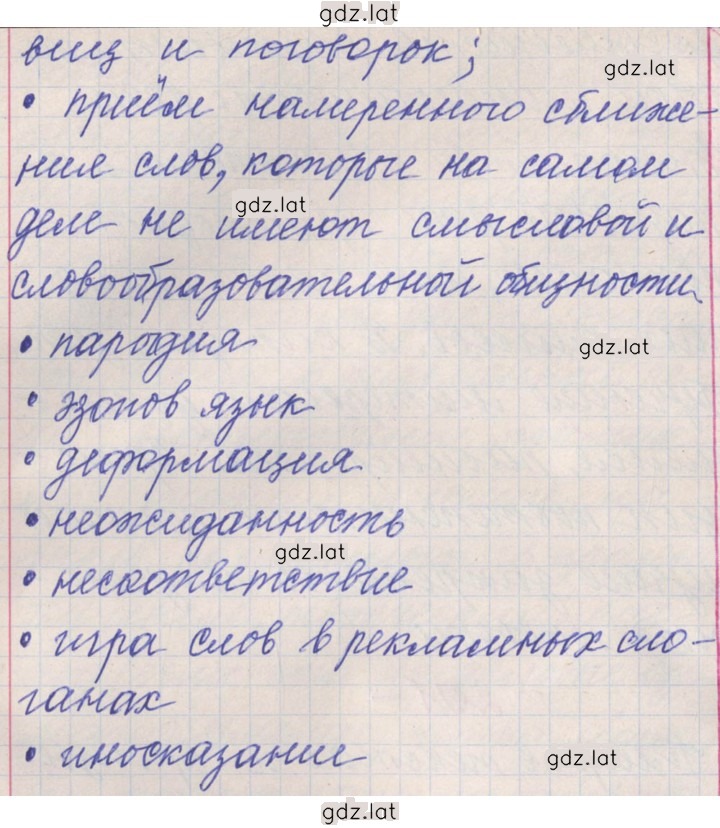 gdz.lat
виц и поговорок;
gdz.lat
• приём намеренного сближе-
ния слов, которые на самом
gdz.lat
деле не имеют смысловой и
словообразовательной общности
• пародия
gdz.lat
• эзопов язык
• деформация
• неожиданность
gdz.lat
• несоответствие
• игра слов в рекламных сло-
ганах
• иносказание
gdz.lat
gdz.lat